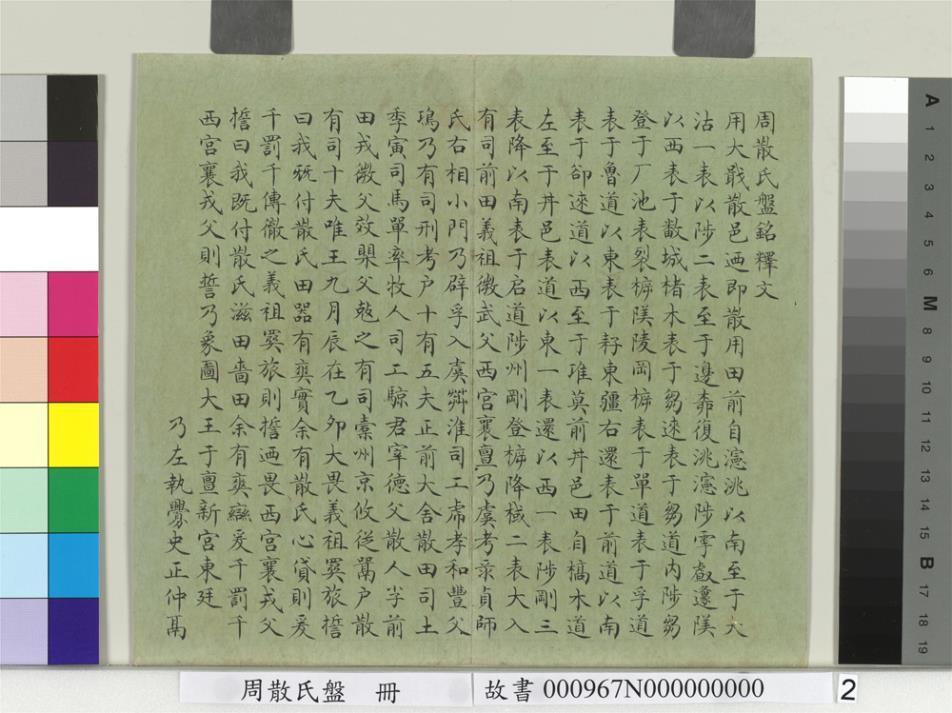 周散氏盤銘釋文
用大戡散邑迺即散用田前自濾洮以南至于大
沽一表以陟二表至于邊桒復洮濾陟雩𠭯䢱𨻰
以西表于敽城楮木表于芻逨表于芻道内陟芻
登于厂池表裂㭉𨻰陵岡㭉表于單道表于孚道
表于魯道以東表于䢉東疆右還表于前道以南
表于郤逨道以西至于琟莫前丼邑田自槁木道
左至于丼邑表道以東一表還以西一表陟剛三
表降以南表于启道陟州剛登㭉降棫二表大入
有司前田義祖微武父西宮襄亶乃虞考彔貞師
氏右相小門乃辟孚入虞𦮙淮司工虎孝和豐父
鳿乃有司刑考户十有五夫正前大舍散田司土
季寅司馬單率牧人司工騬君宰德父散人芓前
田戎微父效𣡌父𢾰之有司橐州京攸從鬲户散
有司十夫唯王九月辰在乙夘大畏義祖𦊱旅誓
曰我既付散氏田器有爽實余有散氏心貸則爰
千罰千傳徹之義祖𦊱旅則誓迺畏西宮襄戎父
誓曰我既付散氏滋田嗇田余有爽䜌爰千罰千
西宮襄戎父則誓乃象圖大王于亶新宮東廷
乃左執𦅫史正仲鬲
周散氏盤 冊 故書 000967N000000000
2
A 1 2 3 4 5 6 M 8 9 10 11 12 13 14 15 B 17 18 19